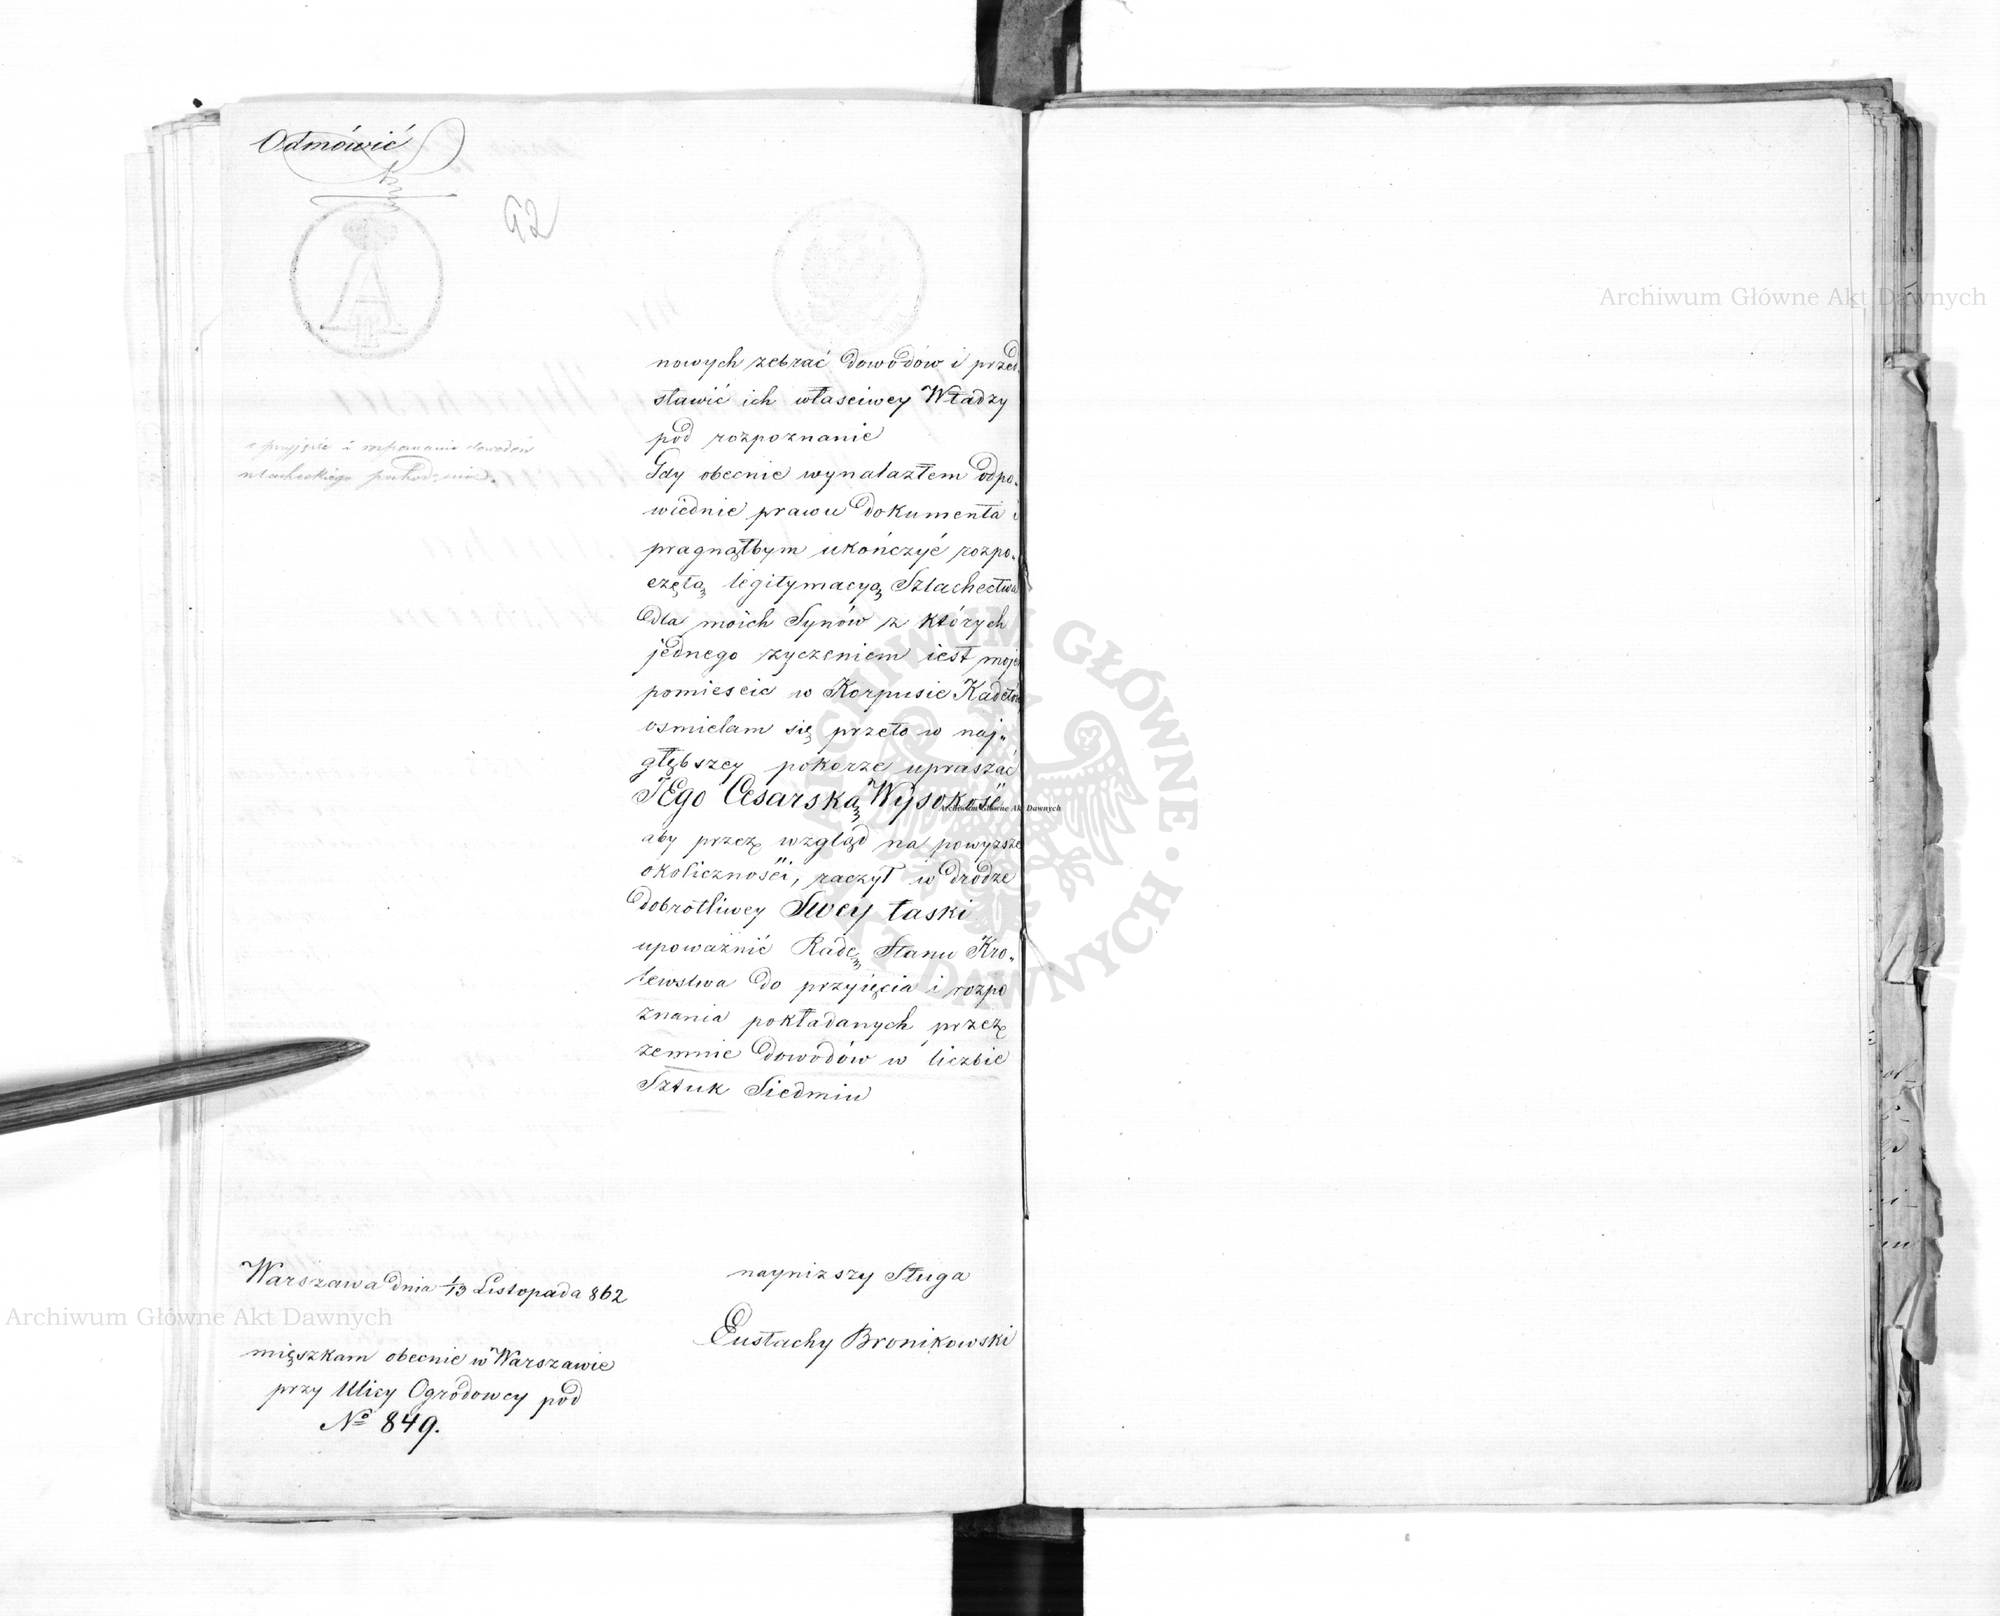 Odmówić
92
o przyjęcie i rozpoznanie dowodów
szlacheckiego pochodzenia.
nowych zebrać dowodów i przed
stawić ich właściwey Władzy
pod rozpoznanie
Gdy obecnie wynalazłem odpo-
wiednie prawu dokumenta i
pragnąłbym ukończyć rozpo-
czętą legitymacyą Szlachectwa
dla moich Synów z których
jednego zyczeniem iest moje
pomiescić w Korpusie Kadetów
osmielam się przeto w naj-
głębszey pokorze upraszać
JEgo Cesarską Wysokość
aby przez wzgląd na powyzsze
okoliczności, raczył w drodze
dobrotliwey Swey łaski
upoważnić Radę Stanu Kro-
lewstwa do przyięcia i rozpo
znania pokładanych przez
zemnie dowodów w liczbie
Sztuk Siedmiu
nayniższy Sługa
Eustachy Bronikowski
Warszawa dnia 1/13 Listopada 862
mięszkam obecnie w Warszawie
przy Ulicy Ogrodowey pod
No 849.
Archiwum Główne Akt Dawnych
Archiwum Główne Akt Dawnych
Archiwum Główne Akt Dawnych
ARCHIWUM GŁÓWNE AKT DAWNYCH